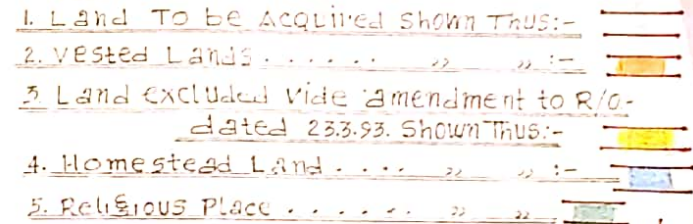 1. Land To be Acquired Shown Thus:-
2. Vested Lands . . . . . . ,, ,, :-
3. Land excluded vide amendment to R/O.-
dated 23.3.93. Shown Thus:-
4. Homestead Land . . . . ,, ,, :-
5. Religious Place . . . . . . ,, ,,